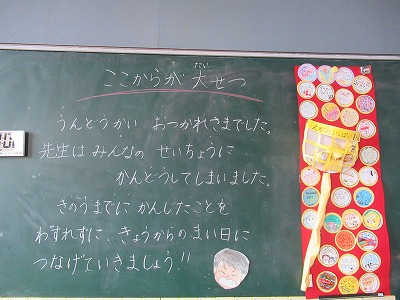 ここからが 大せつ
たい
うんどうかい おつかれさまでした。
先生は みんなの せいちょうに
かんどうしてしまいました。
きのうまでに かんじたことを
わすれずに、きょうからの まい日に
つなげていきましょう!!